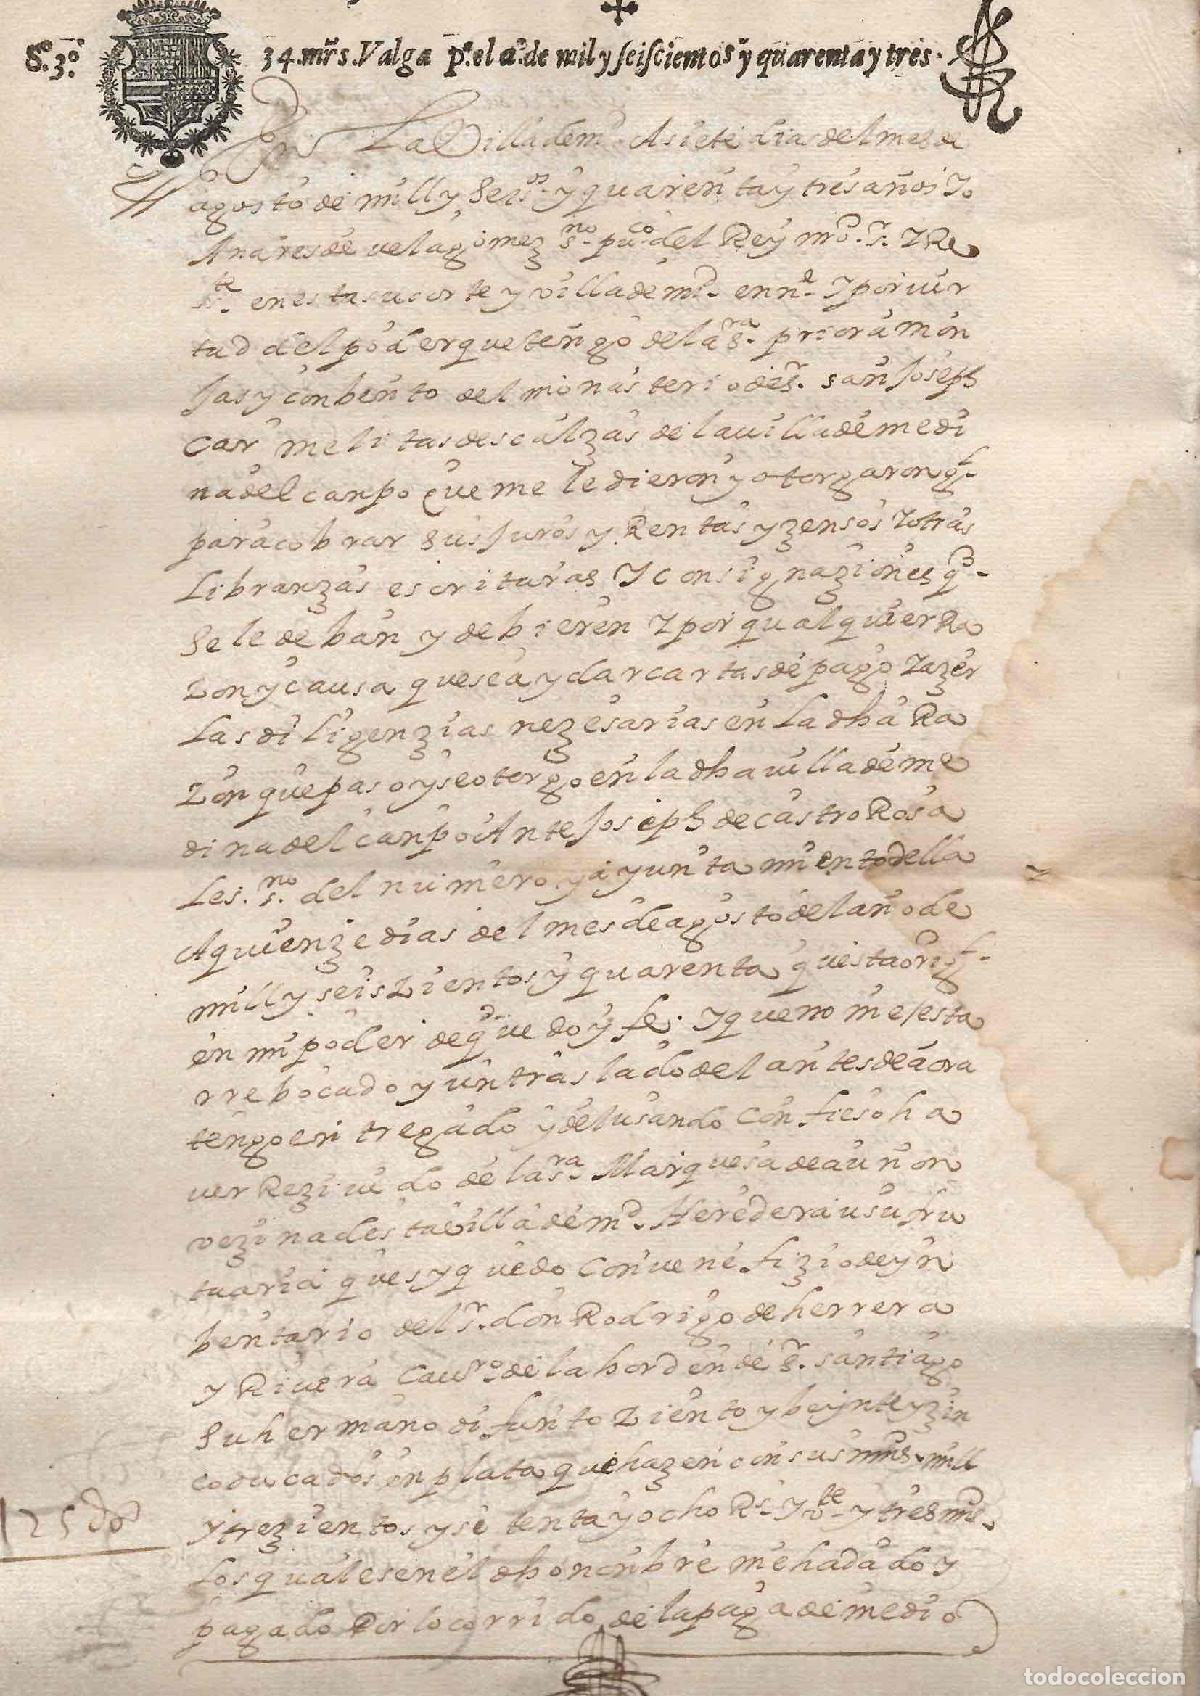 S.º 3.º
34. mrs. Valga pª. el aº. de mil y seiscientos y quarenta y tres.
En La Villa de mº. A siete dias del mes de
agosto de mill y seisºˢ y quarenta y tres años Yo
Andres de velagomez sⁿº. puᶜº. del Rey nrº. sʳ. y Re
sᵗᵉ. en esta su corte y villa de mᵈ. en nᵉ. y por vir
tud del poder que tengo de la sʳᵃ. priora mon
jas y conbento del monasterio de sʳ. san Joseph
carmelitas descalzas de la villa de medi
na del canpo que me le dieron y otorgaron
para cobrar sus juros y Rentas y zensos y otras
libranzas escrituras y consignaziones q.
se le deban y debieren y por qualquier Ra
zon y causa que sea y dar cartas de pago y azer
las diligenzias nezesarias en la dha Ra
zon que paso y se otorgo en la dha villa de me
dina del canpo Ante Joseph de castro Rosa
les. sⁿº. del numero y ayuntamiento della
A quienze dias del mes de agosto del año de
mill y seiszientos y quarenta questa orig
en mi poder de que doy fe. y que no me esta
rrebocado y un traslado del antes de aora
tengo entregado y del usando confieso ha
ver Rezivido de la sʳᵃ Marquesa de auñon
vezina desta villa de mᵈ. Heredera usufru
tuaria que syquedo con venefizio de yn
bentario del sʳ. don Rodrigo de herrera
y Rivera cavʳº. de la horden de sʳ. santiago
su hermano difunto ziento y beynte y zin
co ducados en plata que hazen
mill
y trezientos y setenta y ocho Rˢ. y vᵗᵉ y tres mrs.
los quales en el dho nonbre me ha dado y
pagado Por lo corrido de la paga de medio
125 dºˢ
todocoleccion